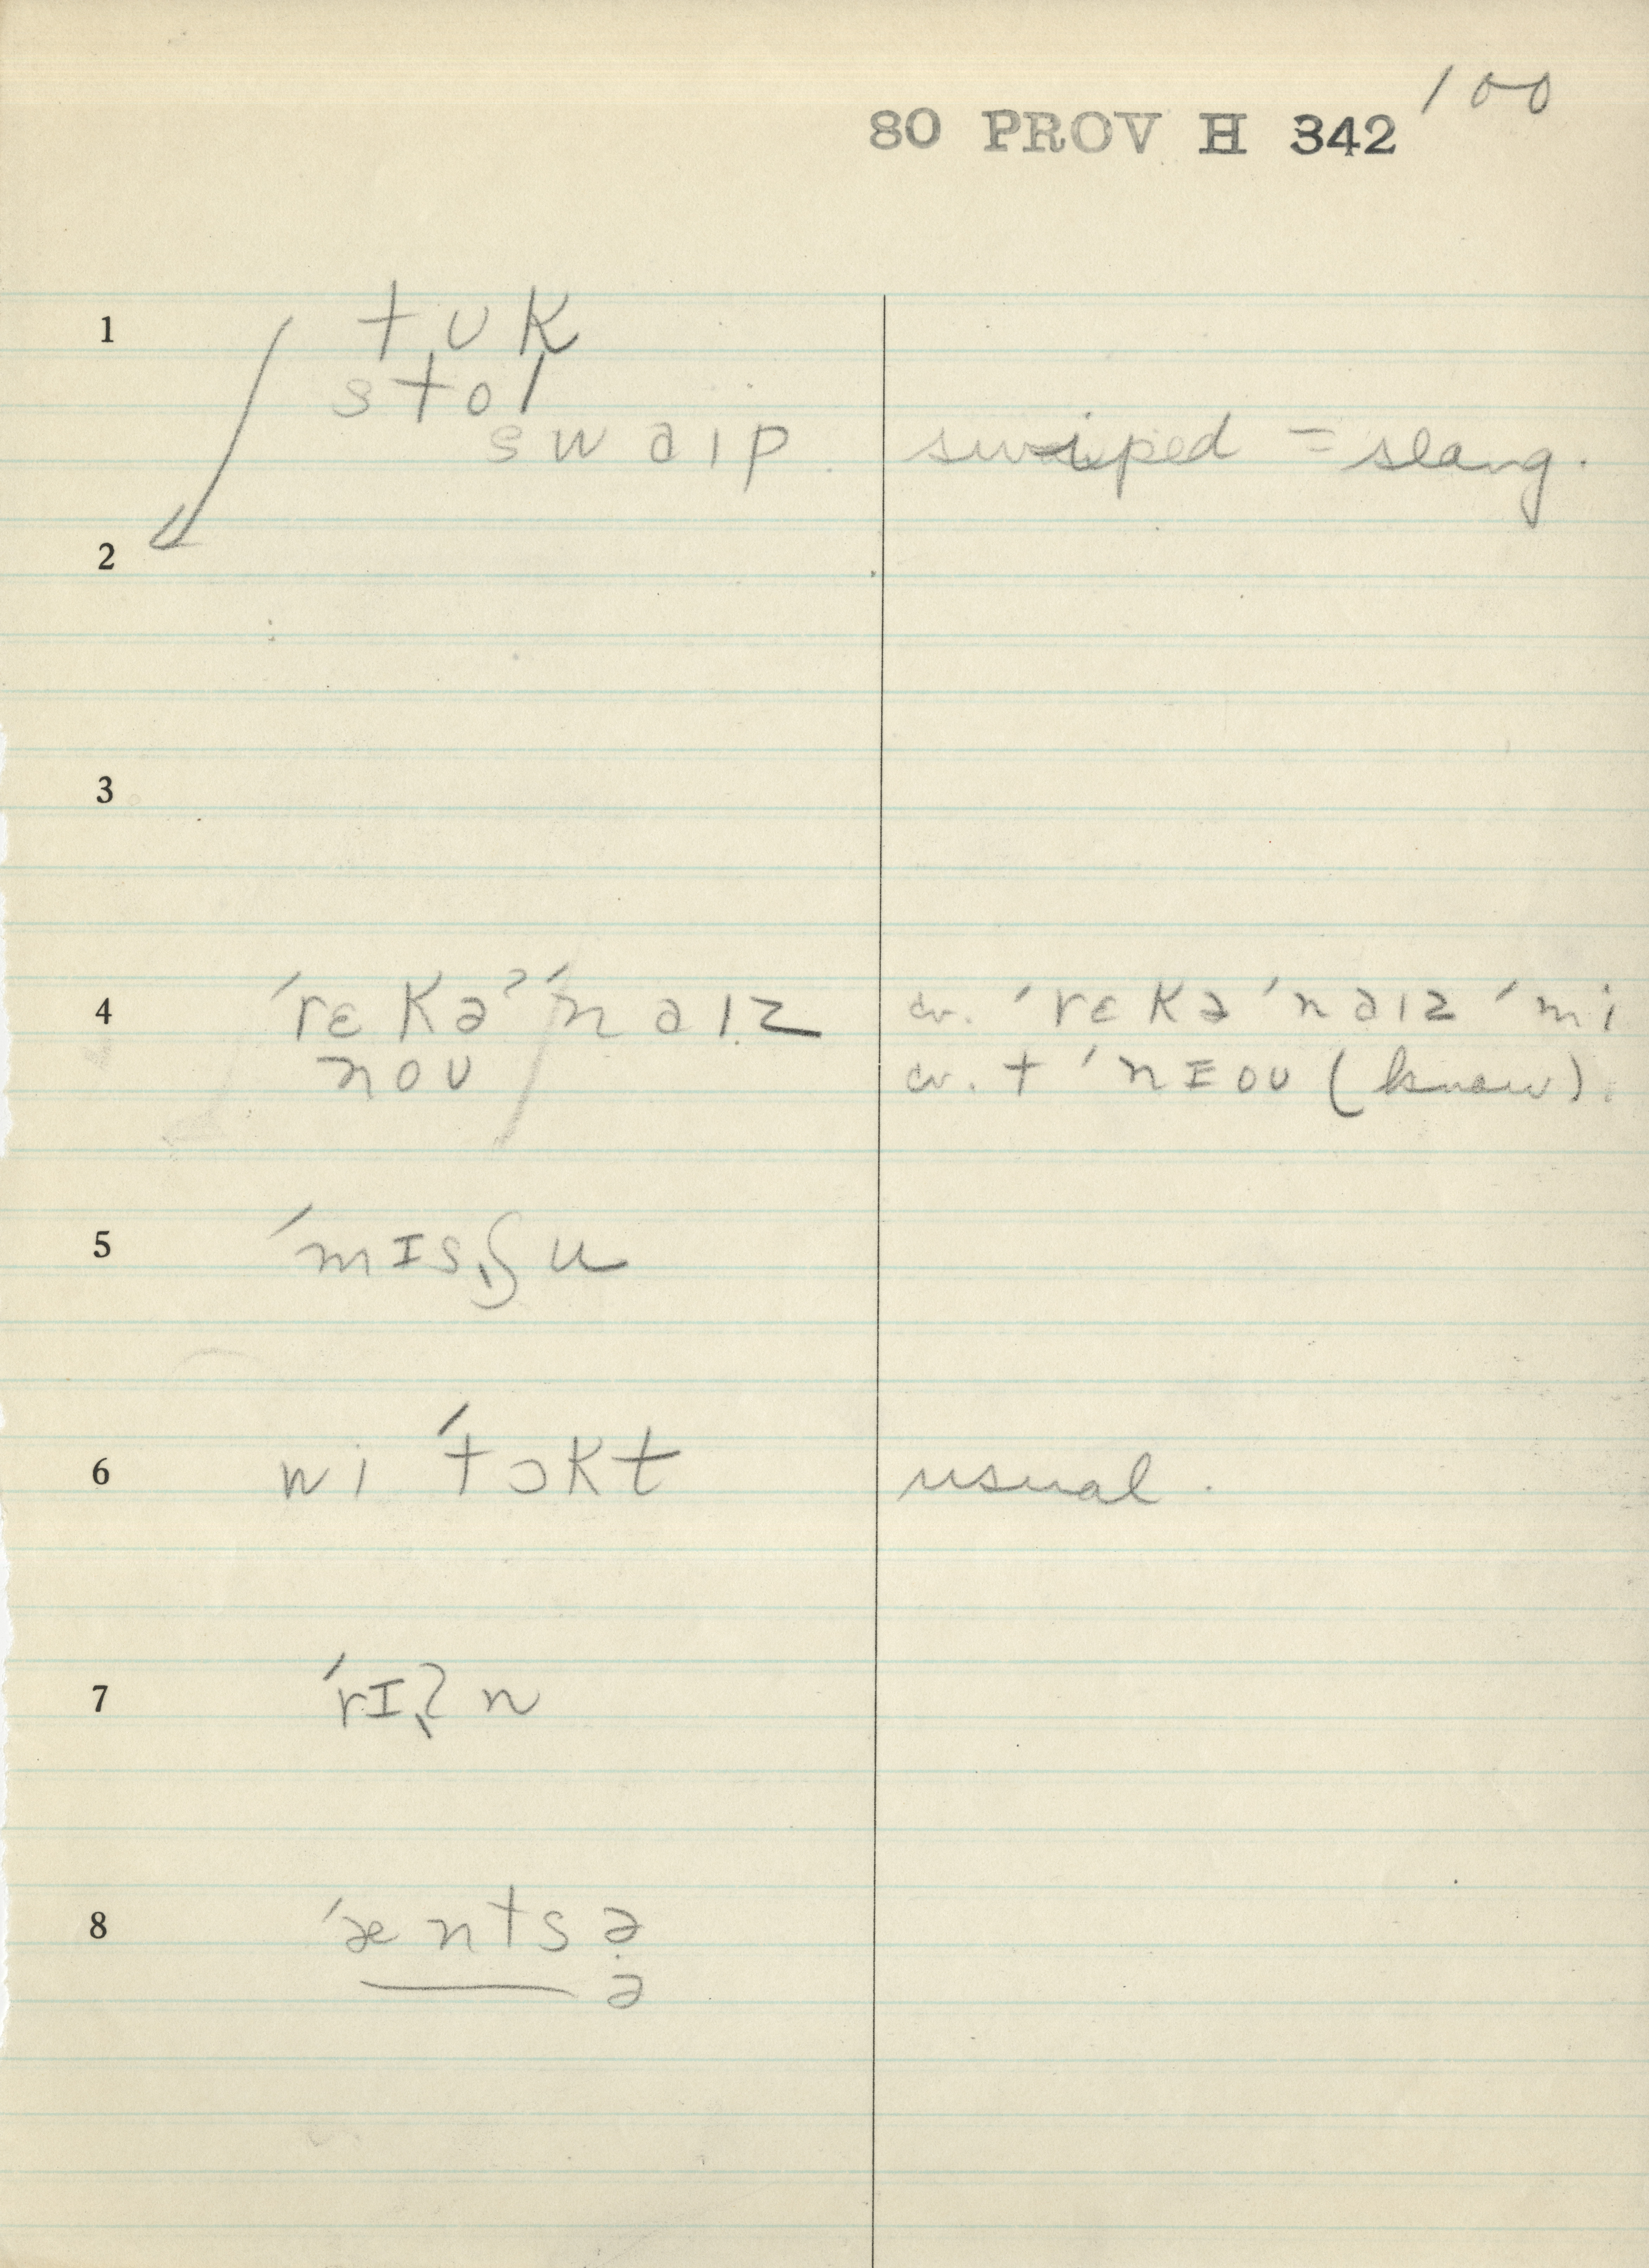 100
80 PROV H 342
1 tʊk
stol
swaip swiped = slang.
2
3
4 ˈrɛkəˀˈnaɪz cv. ˈrɛkəˈnaɪz ˈmi
noʊ cv. t ˈnɪoʊ (knew).
5 ˈmɪsʃu
6 wi ˈtɔkt usual.
7 ˈrɪʔn
8 ˈæntsə
ə